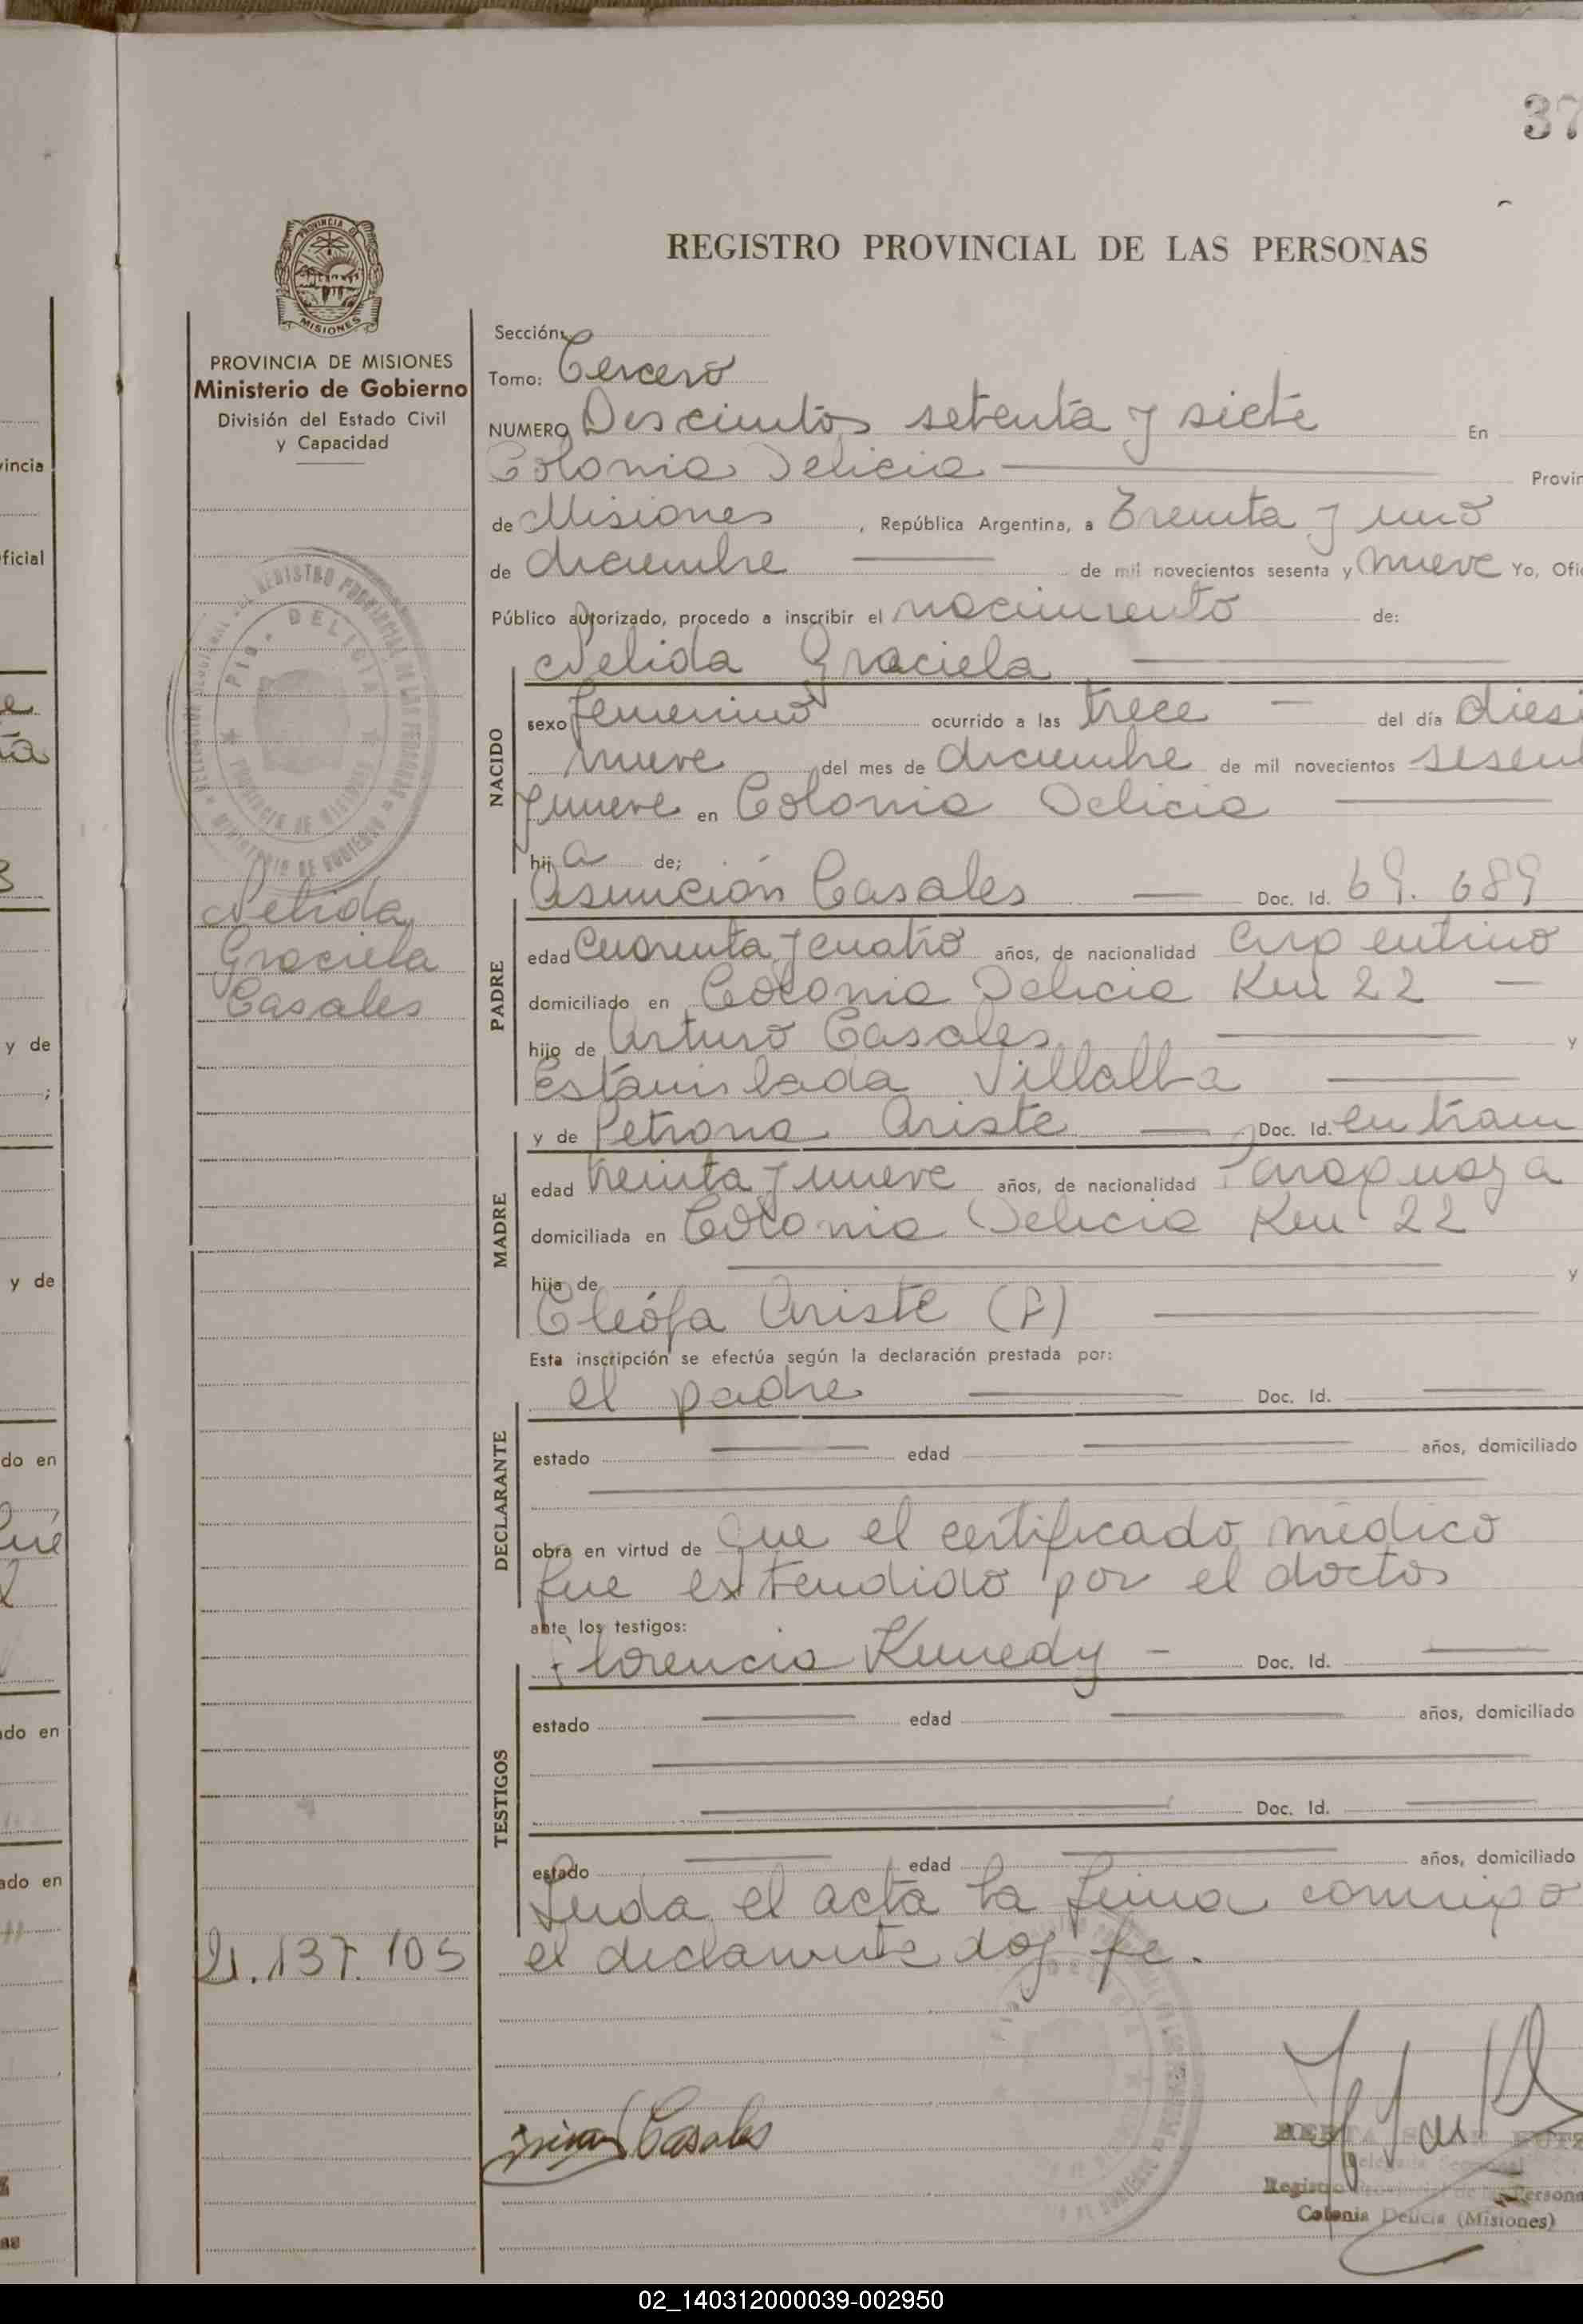 37
REGISTRO PROVINCIAL DE LAS PERSONAS
PROVINCIA DE MISIONES
Ministerio de Gobierno
División del Estado Civil
y Capacidad
Sección:
Tomo: Tercero
NUMERO Doscientos setenta y siete En
Colonia Delicia Provin
de Misiones , República Argentina, a Treinta y uno
de diciembre de mil novecientos sesenta y nueve Yo, Ofi
Público autorizado, procedo a inscribir el nacimiento de:
Nelida Graciela
NACIDO
sexo femenino ocurrido a las trece del día diesi
nueve del mes de diciembre de mil novecientos sesen
y nueve en Colonia Delicia
hij a de;
Asunción Casales Doc. Id. 69.689
PADRE
edad Cuarenta y cuatro años, de nacionalidad argentino
domiciliado en Colonia Delicia Km 22
hijo de Arturo Casales y
Estanislada Villalba
y de Petrona Ariste Doc. Id. en tram
MADRE
edad treinta y nueve años, de nacionalidad Paraguaya
domiciliada en Colonia Delicia Km 22
hija de y
Cleófa Ariste (P)
Esta inscripción se efectúa según la declaración prestada por:
el padre Doc. Id.
DECLARANTE
estado edad años, domiciliado
obra en virtud de que el certificado médico
fue extendido por el doctor
ante los testigos:
Florencio Kennedy Doc. Id.
TESTIGOS
estado edad años, domiciliado
Doc. Id.
estado edad años, domiciliado
Leida el acta la firma conmigo
el declarante doy fe.
Nelida
Graciela
Casales
21.137.105
Casales
Registro Provincial de las Persona
Colonia Delicia (Misiones)
PROVINCIA DE
MISIONES
REGISTRO PROVINCIAL DE LAS PERSONAS
DELICIA
PROVINCIA DE MISIONES
MINISTERIO DE GOBIERNO
vincia
ficial
y de
y de
do en
do en
ado en
02_140312000039-002950